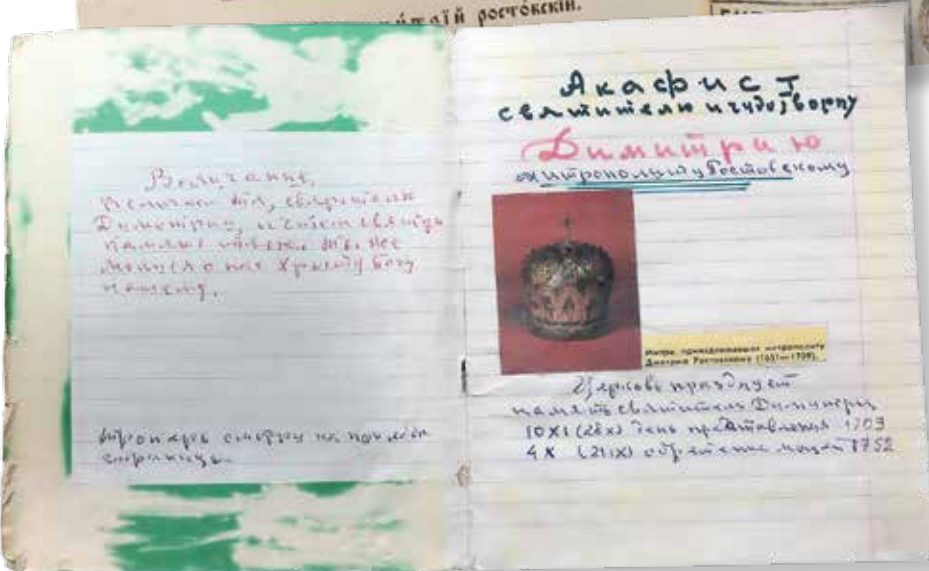 ростовскiй.
Величание.
Величаем тя, святителю
Димитрие, и чтем святую
память твою, ты бо
молиши о нас Христа Бога
нашего.
Тропарь смотри на последн
странице.
Акафист
святителю и чудотворцу
Димитрию
митрополиту Ростовскому
Митра, принадлежавшая митрополиту
Димитрию Ростовскому (1651—1709).
Церковь празднует
память святителя Димитрия
10 XI (28 X) день преставления 1709
4 X (21 IX) обретение мощей 1752